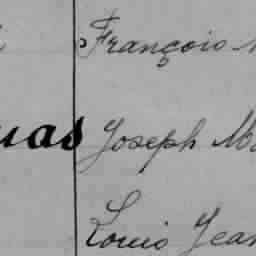 François
Joseph
Louis Jean